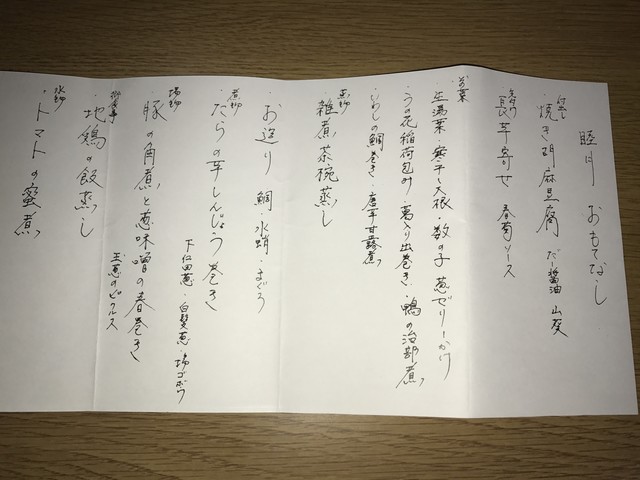 睦月 おもてなし
・焼き胡麻豆腐 だし醤油 山葵
・長芋寄せ 春菊ソース
お菜
生湯葉・寒干し大根・数の子 葱ゼリーかけ
うの花稲荷包み・葛入り出巻き・鴨の治部煮
いわしの鯛巻き・唐芋甘露煮
蒸物
・雑煮茶椀蒸し
・お造り 鯛・水蛸・まぐろ
煮物
・たらの芽しんじょう巻き
下仁田葱・白髪葱・揚ゴボウ
揚物
・豚の角煮と葱味噌の春巻き
玉葱のピクルス
御食事
・地鶏の飯蒸し
水物
・トマトの蜜煮